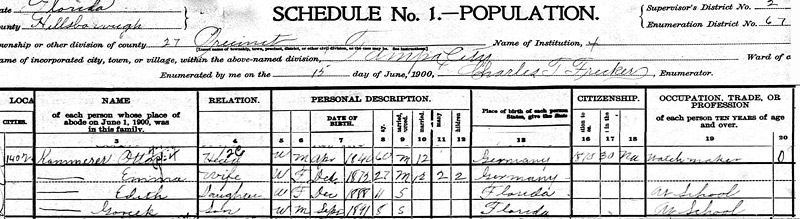 Florida
SCHEDULE No. 1.—POPULATION.
Supervisor's District No. 2
County Hillsborough
Enumeration District No. 67
Township or other division of county 27 Precinct
Name of Institution, X
Name of incorporated city, town, or village, within the above-named division, Tampa City
Ward of
Enumerated by me on the 15 day of June, 1900, Charles T. Fricker, Enumerator.
LOCA NAME RELATION. PERSONAL DESCRIPTION. CITIZENSHIP. OCCUPATION, TRADE, OR PROFESSION
CITIES. of each person whose place of abode on June 1, 1900, was in this family. DATE OF BIRTH. Place of birth of each person of each person TEN YEARS of age and over.
3 4 5 6 7 8 9 10 11 12 13 16 17 18 19 20
Kammerer Otto Head W M Apr 1840 60 M 12 Germany 30 Na Watchmaker 0
— Emma Wife W F Dec 1872 27 M 12 2 2 Germany
— Edith Daughter W F Dec 1888 11 S Florida At School
— Son W M Sept 1891 8 S Florida At School